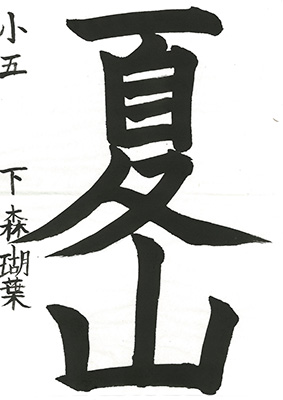 夏山
小五 下森瑚葉